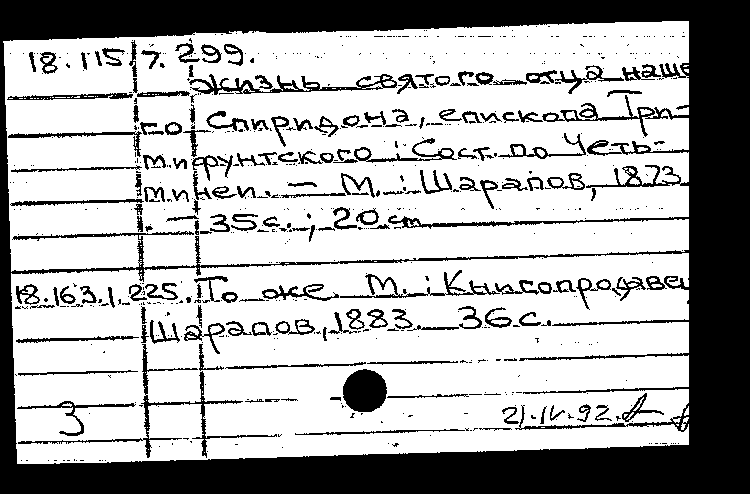 18.115.7.299.
Жизнь святого отца наше
го Спиридона, епископа Три-
мифунтского : Сост. по Четь-
минеи. — М. : Шарапов, 1873
. — 35 с. ; 20 см
18.163.1.225. То же. М. : Книгопродавец
Шарапов, 1883. 36 с.
3
21.IV.92.